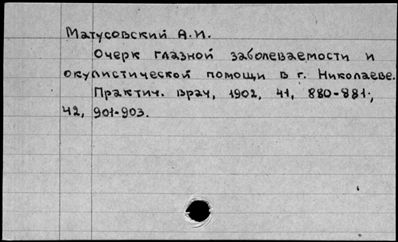 Матусовский А.И.
Очерк глазной заболеваемости и
окулистической помощи в г. Николаеве.
Практич. врач, 1902, 41, 880-881;
42, 901-903.